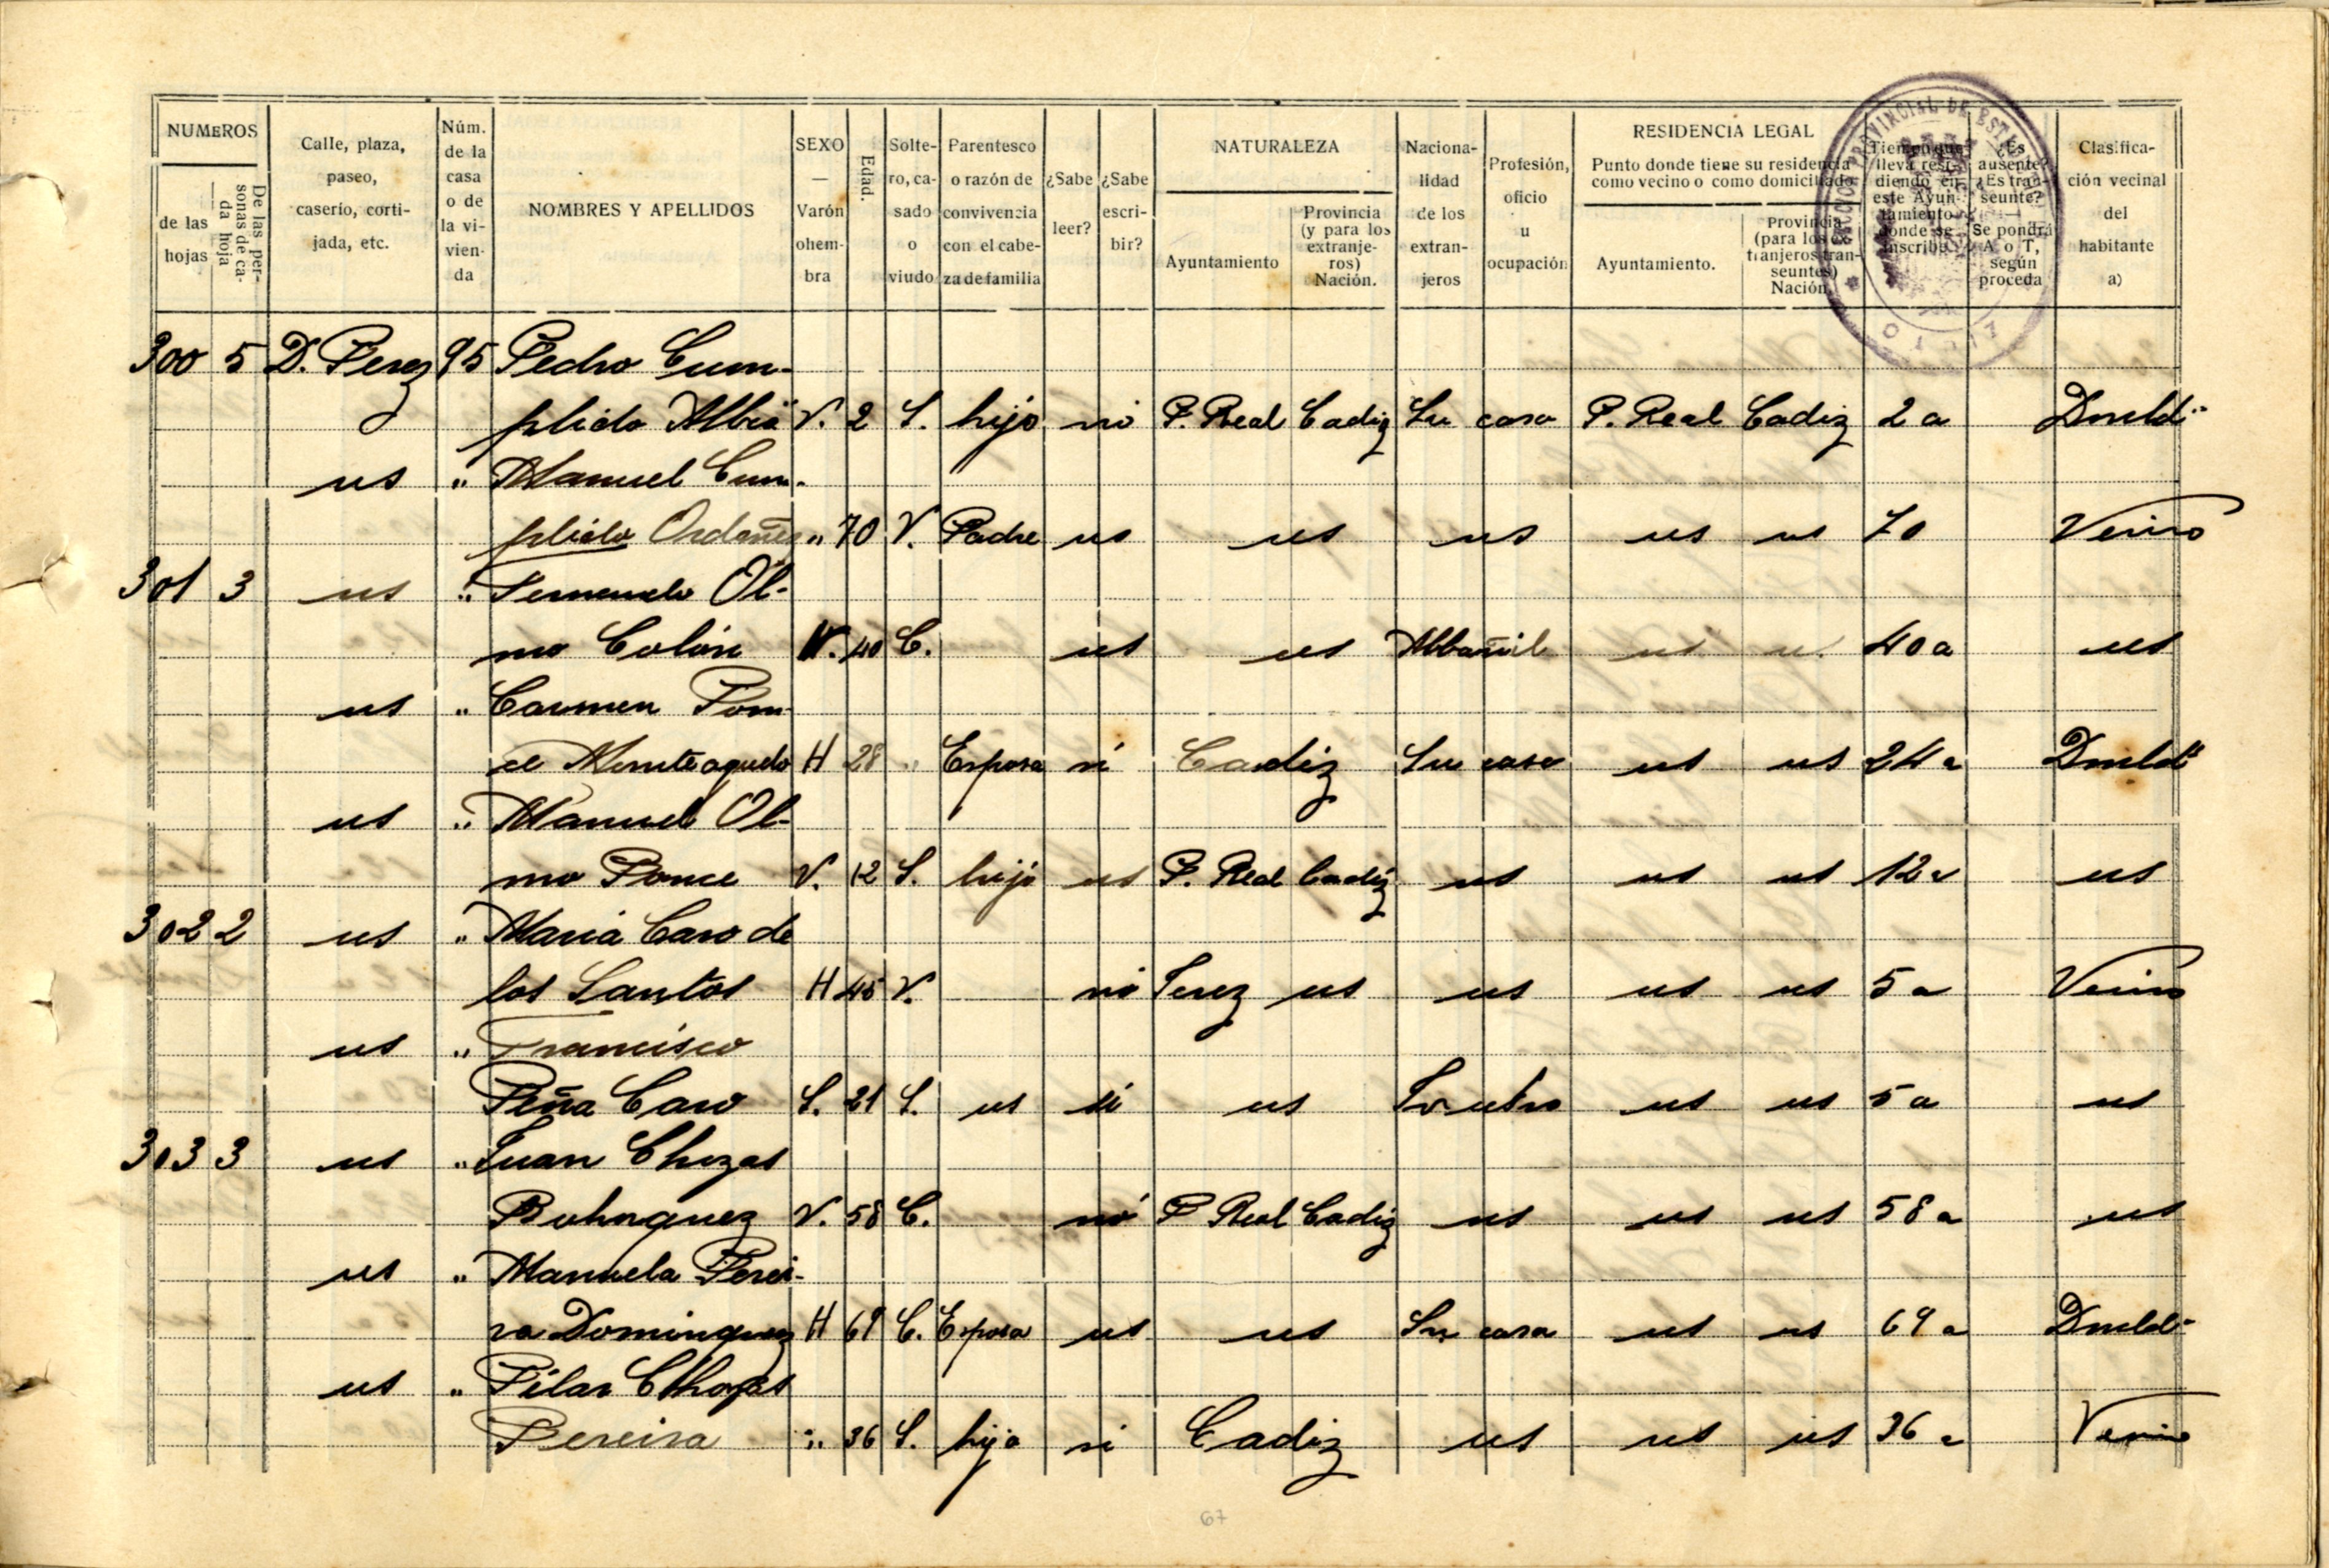 NUMEROS
de las hojas
De las personas de cada hoja
Calle, plaza, paseo, caserío, cortijada, etc.
Núm. de la casa o de la vivienda
NOMBRES Y APELLIDOS
SEXO — Varón o hembra
Edad.
Soltero, casado o viudo
Parentesco o razón de convivencia con el cabeza de familia
¿Sabe leer?
¿Sabe escribir?
NATURALEZA
Ayuntamiento
Provincia (y para los extranjeros) Nación.
Nacionalidad de los extranjeros
Profesión, oficio u ocupación
RESIDENCIA LEGAL
Punto donde tiene su residencia como vecino o como domiciliado
Ayuntamiento.
Provincia (para los extranjeros transeuntes) Nación.
Tiempo que lleva residiendo en este Ayuntamiento donde se inscribe
¿Es ausente? ¿Es transeunte? — Se pondrá A o T, según proceda
Clasificación vecinal del habitante a)
300 5 D. Perez 95 Pedro Cum-
plido V. 2 S. hijo no P. Real Cadiz Su casa P. Real Cadiz 2 a
us " Manuel Cum-
plido Ordoñez " 70 V. Padre us us us us us 70 Vecino
301 3 us " Fernando Ol-
mo Colón V. 40 C. us us Albañil us u. 40 a us
us " Carmen Pon-
ce Monteagudo H 28 " Esposa si Cadiz Su casa us us 24 a
us " Manuel Ol-
mo Ponce V. 12 S. hijo us P. Real Cadiz us us us 12 a us
302 2 us " Maria Caro de
los Santos H 45 V. no Jerez us us us us 5 a Vecino
us " Francisco
Peña Caro S. 21 S. us si us us us 5 a us
303 3 us " Juan Chozas
Bohorquez V. 58 C. no P Real Cadiz us us us 58 a us
us " Manuela Perei-
ra Dominguez H 69 C. Esposa us us Su casa us us 69 a
us " Pilar Chozas
Pereira " 36 S. hija si Cadiz us us us 36 a Vecino
67